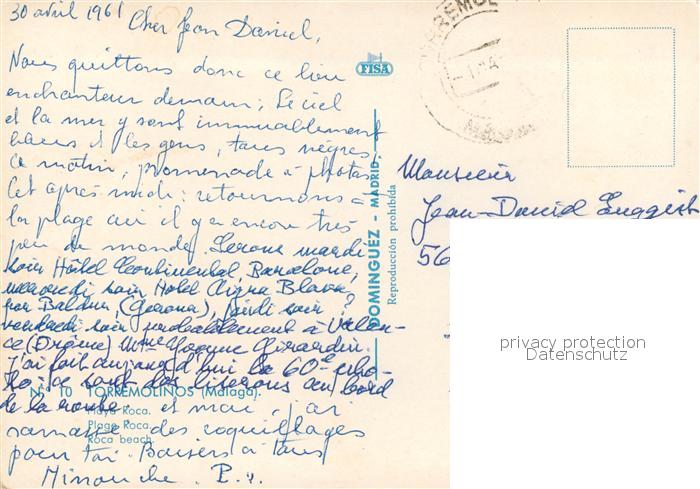 30 avril 1961
Cher Jean Daniel,
Nous quittons donc ce lieu
enchanteur demain; Le ciel
et la mer y sont immuablement
bleus et les gens, tous nègres.
Ce matin, promenade à photos.
Cet après-midi: retournons à
la plage où il y a encore très
peu de monde. Serons mardi
soir Hôtel Continental, Barcelone,
mercredi soir Hotel Aigua Blava
par (Gerona), jeudi soir ?
vendredi soir probablement à Valen-
ce (Drôme) Mme Girardin.
J'ai fait aujourd'hui la 60e photo
ce sont des liserons au bord
de la route. et moi, j'ai
ramassé des coquillages
pour toi. Baisers à tous
Minouche. P.
FISA
DOMINGUEZ - MADRID.
Reproducción prohibida
N.º 10 TORREMOLINOS (Málaga).
Playa Roca.
Plage Roca.
Roca beach.
Monsieur
Jean-Daniel
56
privacy protection
Datenschutz